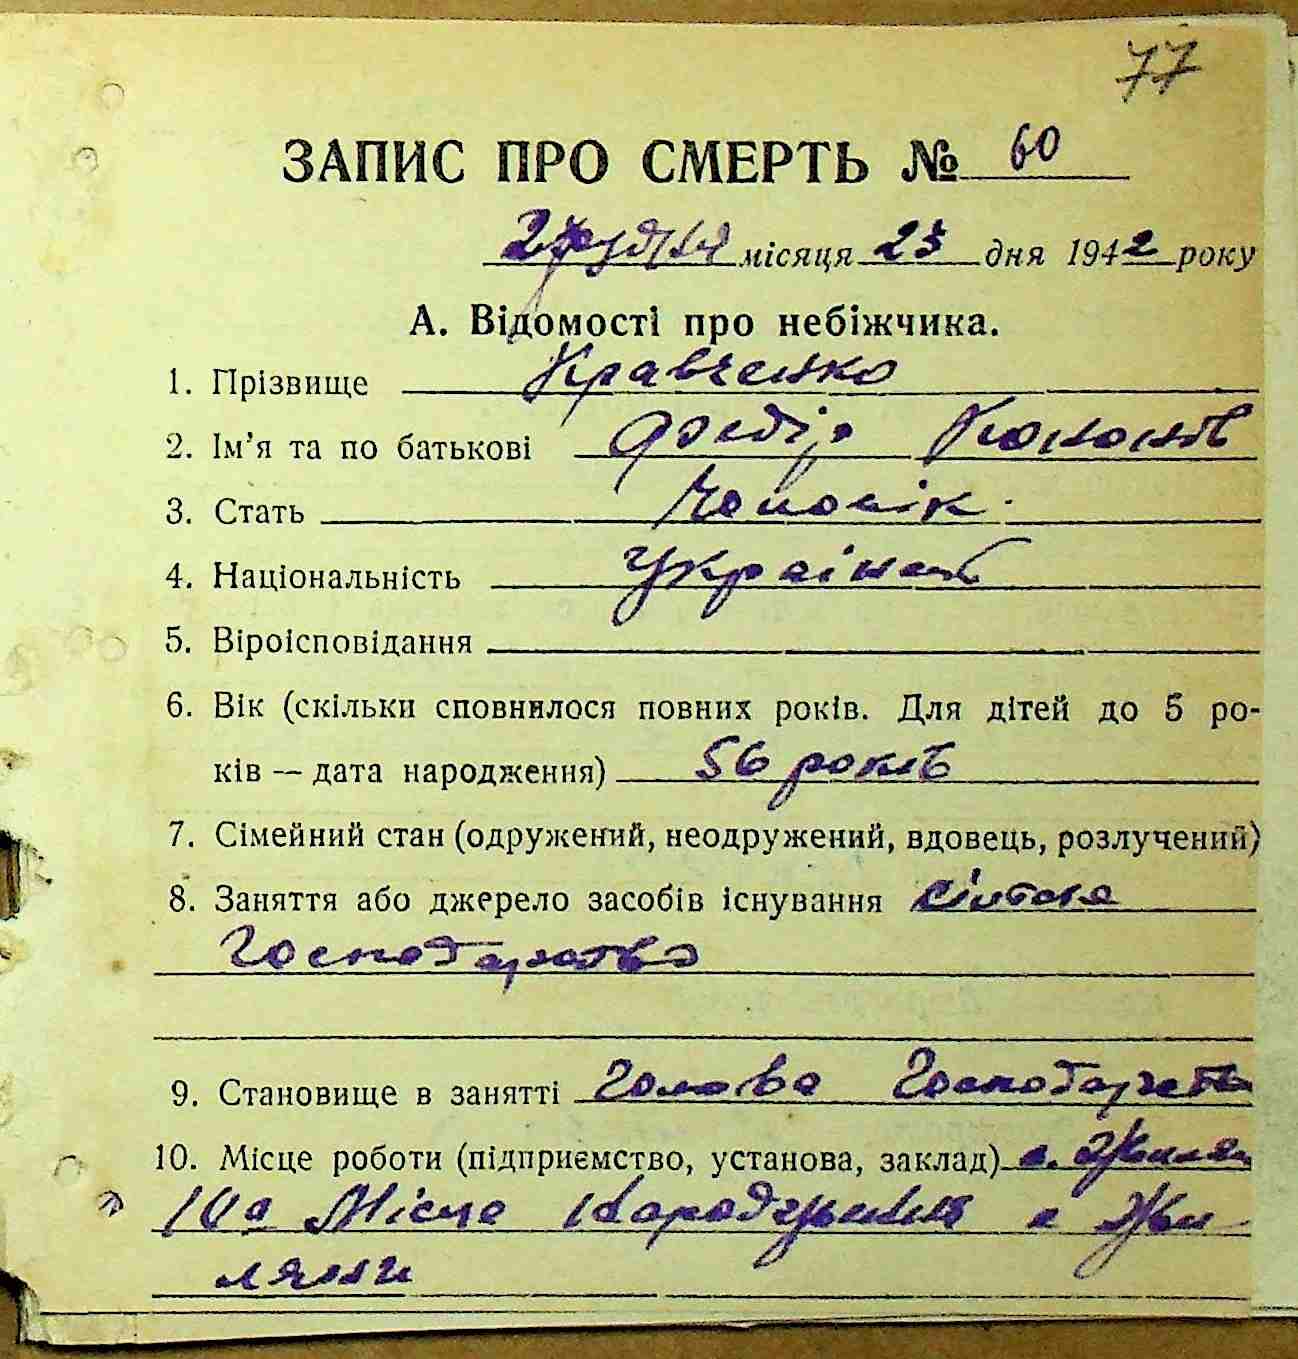 77
ЗАПИС ПРО СМЕРТЬ № 60
грудня місяця 23 дня 1942 року
А. Відомості про небіжчика.
1. Прізвище Кравченко
2. Ім'я та по батькові Федір Кононов
3. Стать Чоловік
4. Національність Українец
5. Віроісповідання
6. Вік (скільки сповнилося повних років. Для дітей до 5 ро-
ків — дата народження) 56 років
7. Сімейний стан (одружений, неодружений, вдовець, розлучений)
8. Заняття або джерело засобів існування сільське
господарство
9. Становище в занятті голова господарства
10. Місце роботи (підприємство, установа, заклад) с. Жиляни
10а Місце народження с Жи-
ляни